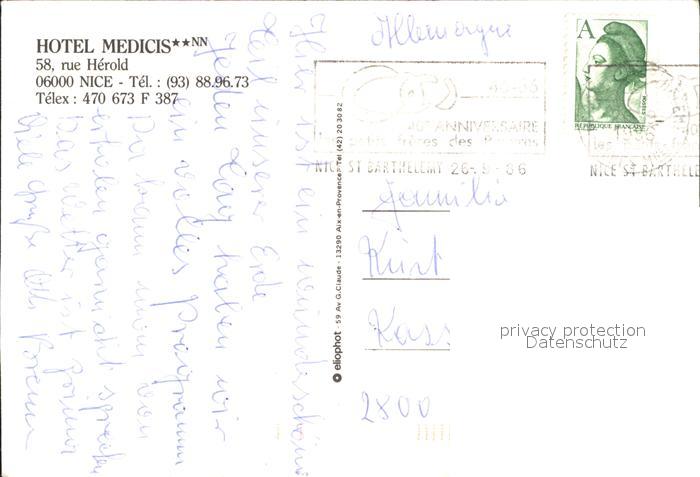 HOTEL MEDICIS★★NN
58, rue Hérold
06000 NICE - Tél. : (93) 88.96.73
Télex : 470 673 F 387
Hier ist ein wunderschöner
Teil unserer Erde
Jeden Tag haben wir
ein volles Programm
Da kann man von
erholen garnicht sprechen
Das Wetter ist prima
Viele Grüße
eliophot - 59 Av G.Claude - 13290 Aix-en-Provence - Tél (42) 20 30 82
Allemagne
40e ANNIVERSAIRE
des petits frères des Pauvres
NICE ST BARTHELEMY 26-9-86
A
REPUBLIQUE FRANÇAISE
NICE ST BARTHELE
Familie
Kurt
Kass
2800
privacy protection
Datenschutz